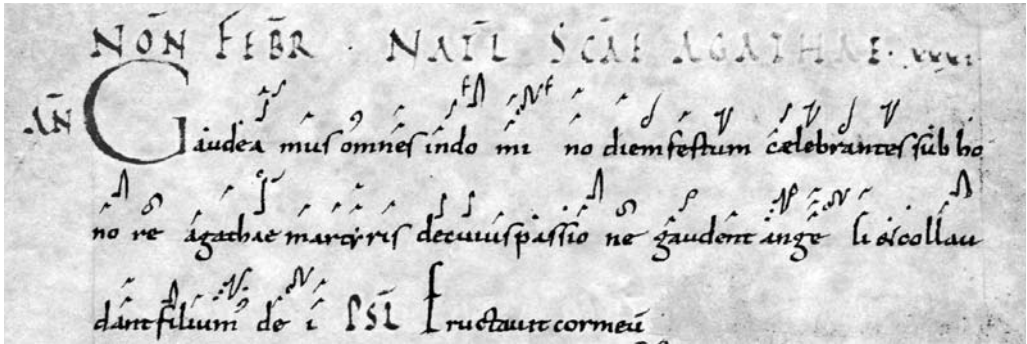 NOÑ FEBR̄ · NAT̄L SC̄AE AGATHAE · xxxi
AÑ Gaudea mus omnes indo mi no diem festum caelebrantes sub ho
no re agathae martyris decuius passio ne gaudent ange li &collau
dant filium de i PSL̄ Eructauit cor meū